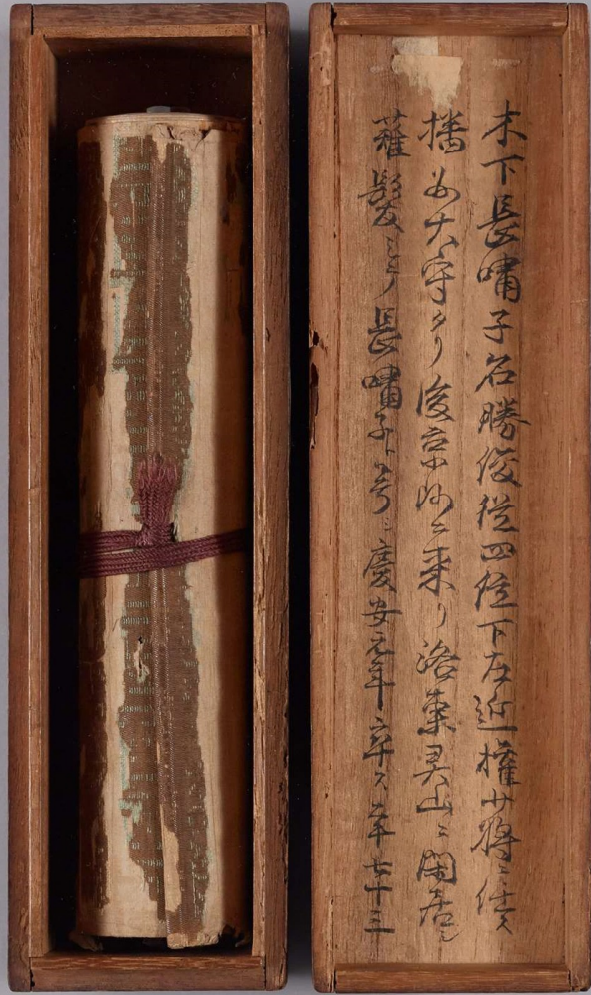 木下長嘯子名勝俊従四位下左近権少将ニ任ス
播州大守タリ後京師ニ来リ洛東霊山ニ閑居シ
薙髪シテ長嘯子ト号ス慶安元年卒ス年七十三